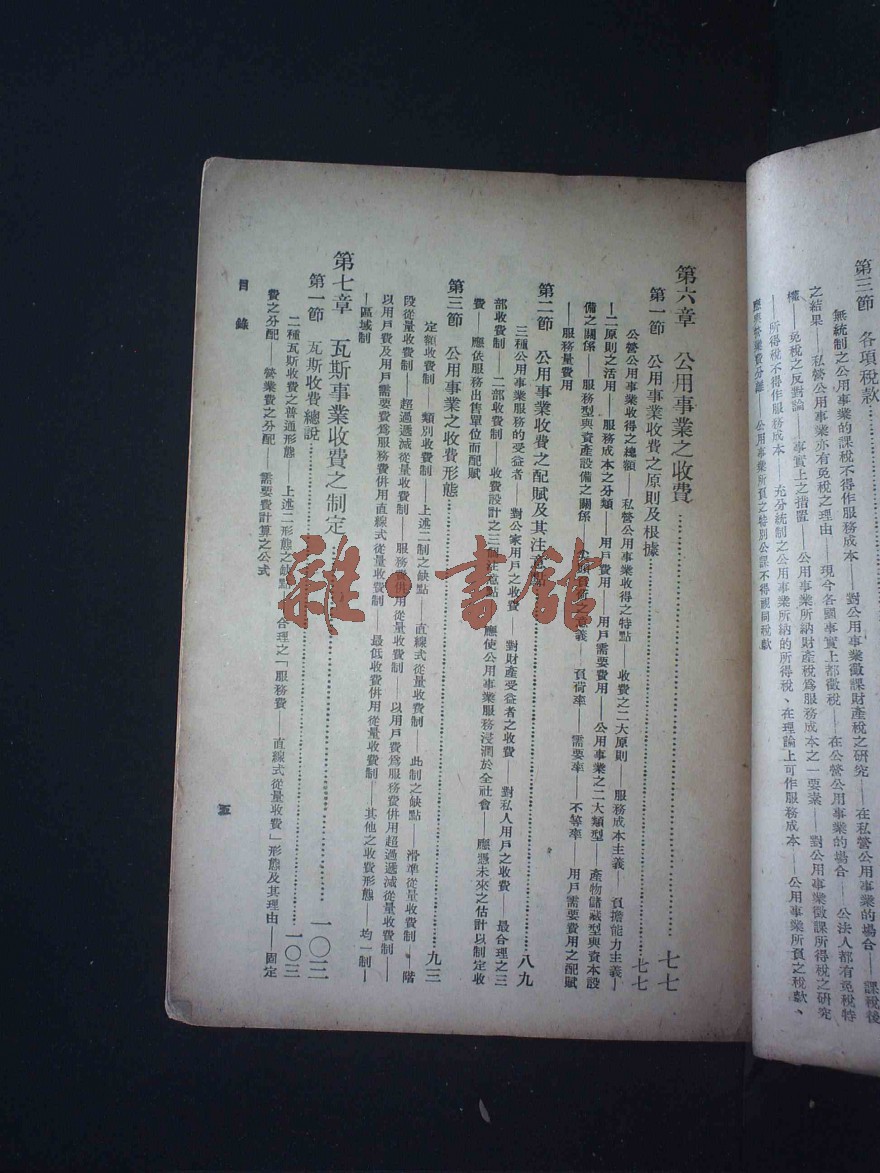 第三節 各項稅款
無統制之公用事業的課稅不得作服務成本——對公用事業徵課財產稅之研究——在私營公用事業的場合——課稅後
之結果——私營公用事業亦有免稅之理由——現今各國事實上都徵稅——在公營公用事業的場合——公法人都有免稅特
權——免稅之反對論——事實上之措置——公用事業所納財產稅爲服務成本之一要素——對公用事業徵課所得稅之研究
——所得稅不得作服務成本——充分統制之公用事業所納的所得稅、在理論上可作服務成本——公用事業所負之稅款、
應與營業費分離——公用事業所負之特別公課不得視同稅款
第六章 公用事業之收費……七七
第一節 公用事業收費之原則及根據……七七
公營公用事業收得之總額——私營公用事業收得之特點——收費之二大原則——服務成本主義——負擔能力主義—
—二原則之活用——服務成本之分類——用戶費用——用戶需要費用——公用事業之二大類型——產物儲藏型與資本設
備之關係——服務型與資產設備之關係——負荷之意義——負荷率——需要率——不等率——用戶需要費用之配賦
——服務量費用
第二節 公用事業收費之配賦及其注意點……八九
三種公用事業服務的受益者——對公家用戶之收費——對財產受益者之收費——對私人用戶之收費——最合理之三
部收費制——二部收費制——收費設計之三個注意點——應使公用事業服務浸潤於全社會——應憑未來之估計以制定收
費——應依服務出售單位而配賦
第三節 公用事業之收費形態……九三
定額收費制——類別收費制——上述二制之缺點——直線式從量收費制——此制之缺點——滑準從量收費制——階
段從量收費制——超過遞減從量收費制——服務費併用從量收費制——以用戶費爲服務費併用超過遞減從量收費制——
以用戶費及用戶需要費爲服務費併用直線式從量收費制——最低收費併用從量收費制——其他之收費形態——均一制—
—區域制
第七章 瓦斯事業收費之制定……一〇三
第一節 瓦斯收費總說……一〇三
二種瓦斯收費之普通形態——上述二形態之缺點——合理之「服務費——直線式從量收費」形態及其理由——固定
費之分配——營業費之分配——需要費計算之公式
目錄
五
雜·書館